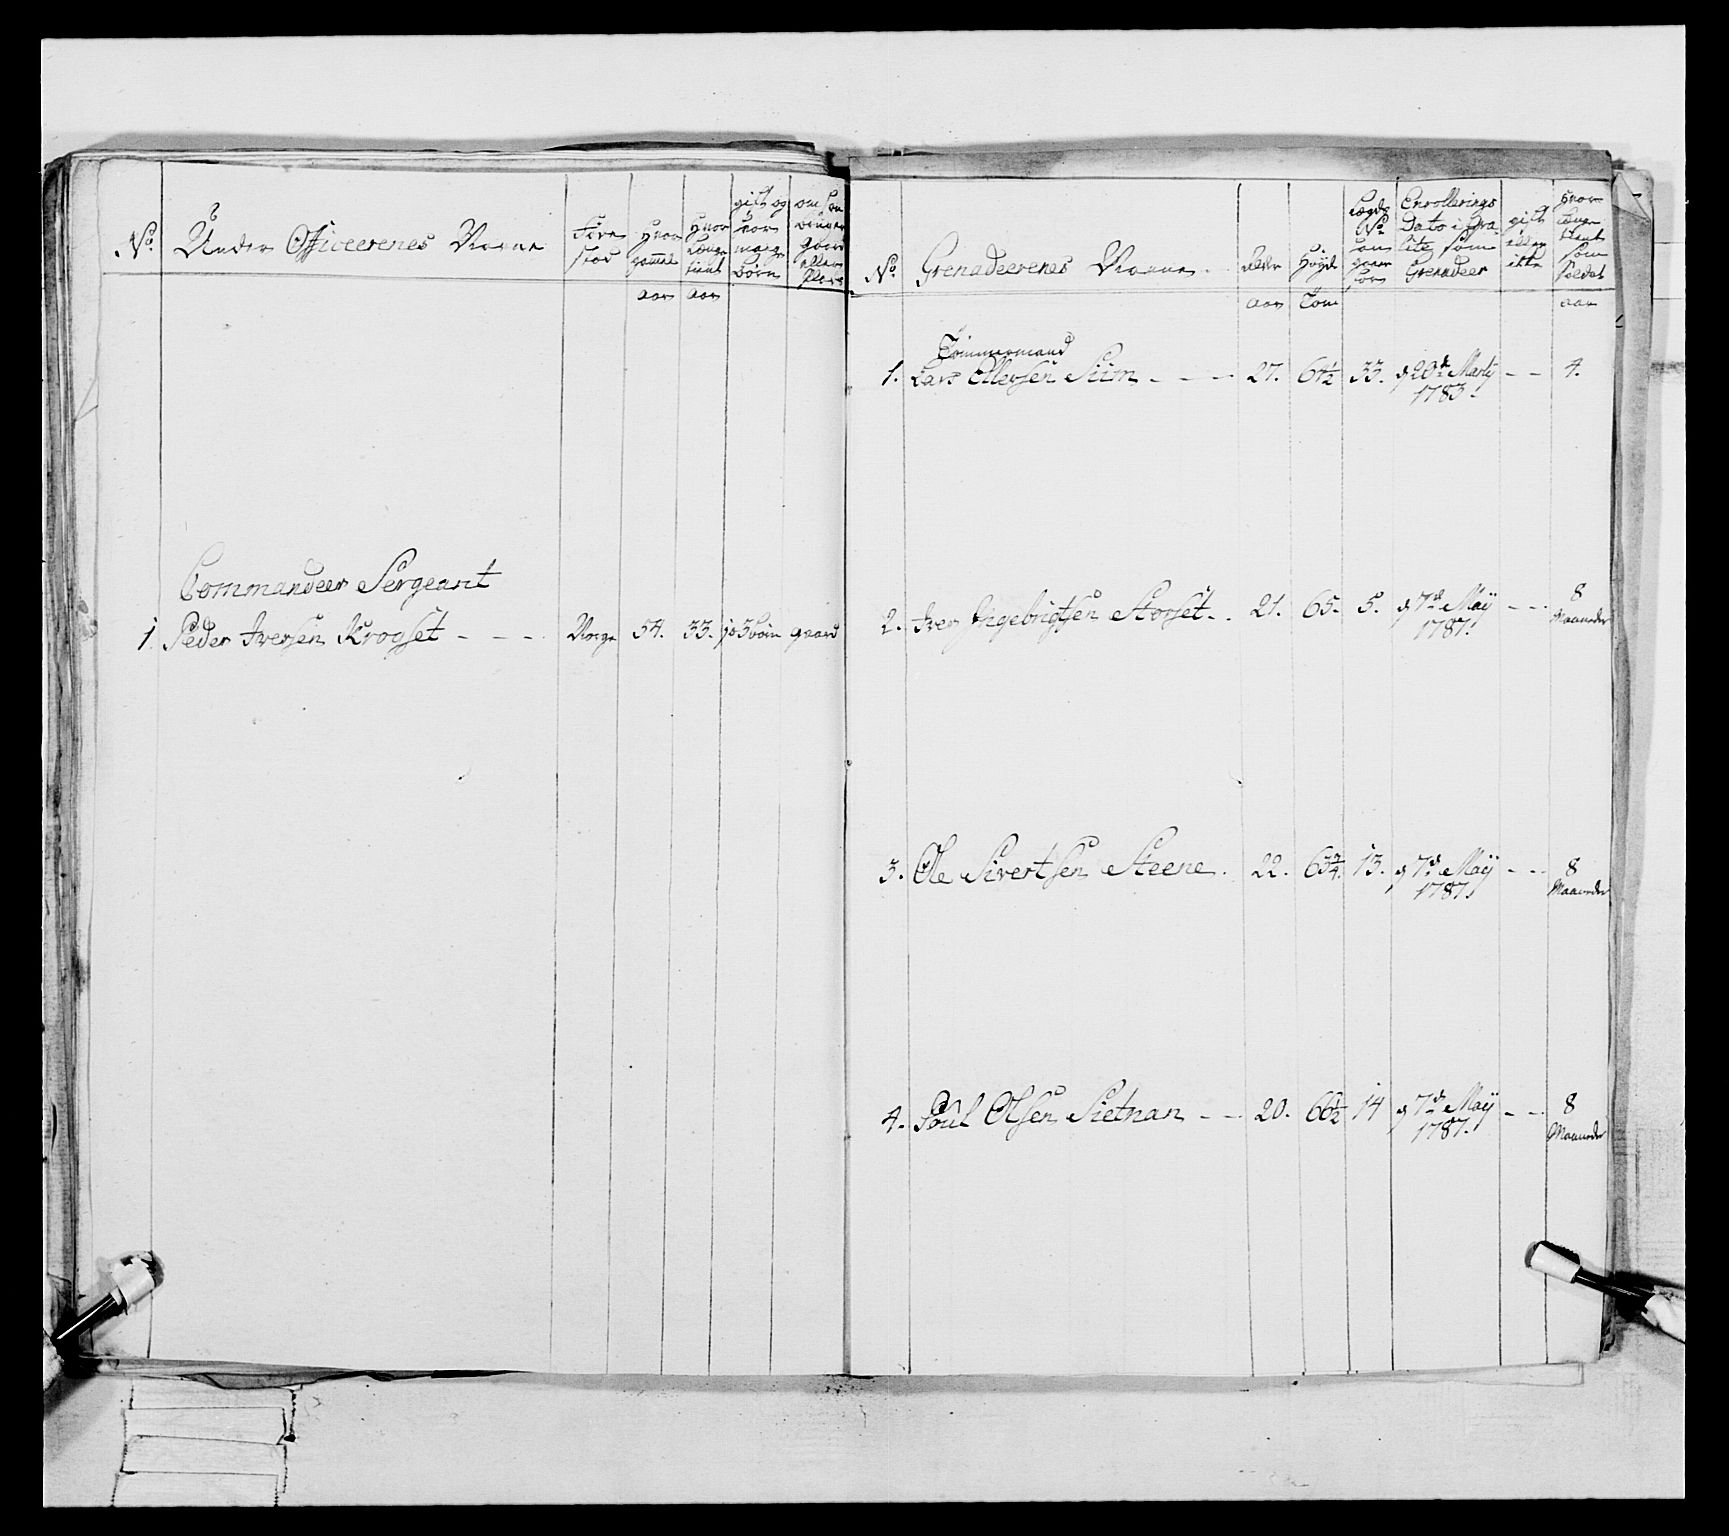 No. Under Officeerenes Navne
Føde stæd
Hvor gammel
Hvor længe tient
gift og
børn
om
gaard
eller
flere
aar aar
Commandeer Sergeant
1. Peder Iversen Krogset - - - Norge 54. 33. ja 3 børn gaard
No. Grenadeerenes Navne.
Alder
Høyde
Lægds No. han gaaer for
Enrollerings Dato i qualite som Grenadeer
gift eller ikke
Hvor længe tient som Soldat
aar Tom aar
Tømmermand
1. Lars Ellersen Siim - - - 27. 64½ 33. d 20de Marty - - 4.
1783.
2. Iver Ingebrigtsen Storset. . 21. 65. 5. d 7de May - - - 8
1787. Maaneder
3. Ole Sivertsen Steene. 22. 63¾. 13. d 7de May - - - 8
1787. Maaneder
4. Poul Olsen Sietnan - - 20. 66½ 14 d 7de May - - 8
1787. Maaneder